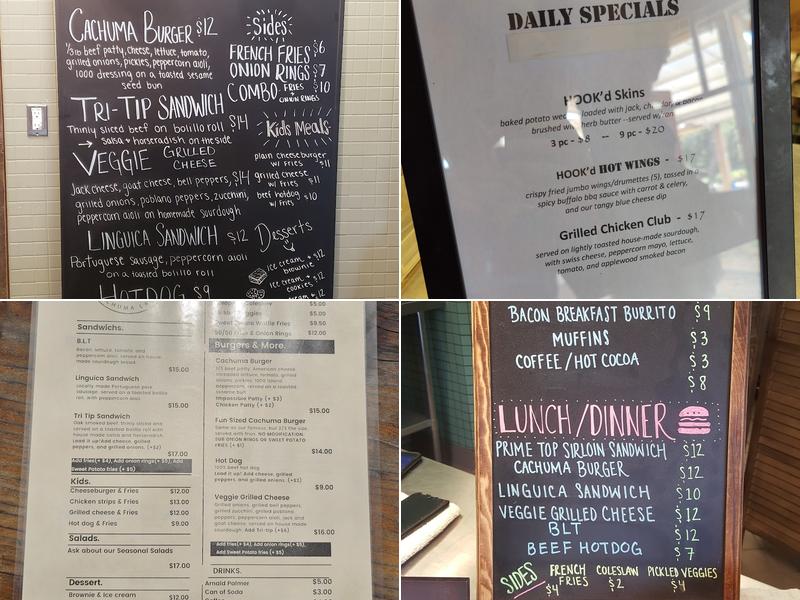 CACHUMA BURGER $12
1/3 lb beef patty, cheese, lettuce, tomato,
grilled onions, pickles, peppercorn aioli,
1000 dressing on a toasted sesame
seed bun
TRI-TIP SANDWICH $14
Thinly sliced beef on bolillo roll
→ salsa + horseradish on the side
VEGGIE GRILLED
CHEESE $14
Jack cheese, goat cheese, bell peppers,
grilled onions, poblano peppers, zucchini,
peppercorn aioli on homemade sourdough
LINGUICA SANDWICH $12
Portuguese sausage, peppercorn aioli
on a toasted bolillo roll
HOTDOG $9
Sides
FRENCH FRIES $6
ONION RINGS $7
COMBO FRIES + ONION RINGS $10
Kids Meals
plain cheeseburger
w/ fries $11
grilled cheese
w/ fries $11
beef hotdog
w/ fries $10
Desserts
ice cream + brownie $12
ice cream + cookies $12
DAILY SPECIALS
HOOK'd Skins
baked potato loaded with jack,
brushed w/ herb butter -- served w/
3 pc - $8 -- 9 pc - $20
HOOK'd HOT WINGS - $17
crispy fried jumbo wings/drumettes (5), tossed in a
spicy buffalo bbq sauce with carrot & celery,
and our tangy blue cheese dip
Grilled Chicken Club - $17
served on lightly toasted house-made sourdough,
with swiss cheese, peppercorn mayo, lettuce,
tomato, and applewood smoked bacon
Sandwichs.
B.L.T
Bacon, lettuce, tomato, and
peppercorn aioli, served on house
made sourdough bread.
$15.00
Linguica Sandwich
Locally made Portuguese pork
sausage, served on a toasted bolillo
roll, with peppercorn aioli
$15.00
Tri Tip Sandwich
Oak smoked beef, thinly sliced and
served on a toasted bolillo roll with
house made salsa and horseradish.
Load it up! Add cheese, grilled
peppers, and grilled onions. (+$1)
$17.00
Add fries(+$4), Add onion rings(+$5), Add
Sweet Potato fries (+$5)
Kids.
Cheeseburger & Fries $12.00
Chicken strips & fries $13.00
Grilled cheese & Fries $12.00
Hot dog & Fries $9.00
Salads.
Ask about our Seasonal Salads
$17.00
Dessert.
Brownie & Ice cream $12.00
$5.00
$5.00
Sweet Potato Waffle Fries $9.50
50/50 Fries & Onion Rings $12.00
Burgers & More.
Cachuma Burger
1/3 beef patty, American cheese,
shredded lettuce, tomato, grilled
onions, pickles, 1000 island,
peppercorn, served on a toasted
sesame bun.
Impossible Patty (+ $3)
Chicken Patty (+ $2)
$15.00
Fun Sized Cachuma Burger
Same as our famous, but 2/3 the size
served with fries. NO MODIFICATION.
SUB ONION RINGS OR SWEET POTATO
FRIES (+ $1)
$14.00
Hot Dog
100% beef hot dog
Load it up! Add cheese, grilled
peppers, and grilled onions. (+$1)
$9.00
Veggie Grilled Cheese
Grilled onions, grilled bell peppers,
grilled zucchini, grilled poblano
peppers, peppercorn aioli, jack and
goat cheese, served on house made
sourdough. Add Tri-tip (+$6)
$16.00
Add fries(+$4), Add onion rings(+$5),
Add Sweet Potato fries (+$5)
DRINKS.
Arnald Palmer $5.00
Can of Soda $3.00
BACON BREAKFAST BURRITO $9
MUFFINS $3
COFFEE / HOT COCOA $3
$8
LUNCH/DINNER
PRIME TOP SIRLOIN SANDWICH $12
CACHUMA BURGER $12
LINGUICA SANDWICH $10
VEGGIE GRILLED CHEESE $12
BLT $12
BEEF HOTDOG $7
SIDES FRENCH FRIES $4 COLESLAW $2 PICKLED VEGGIES $4